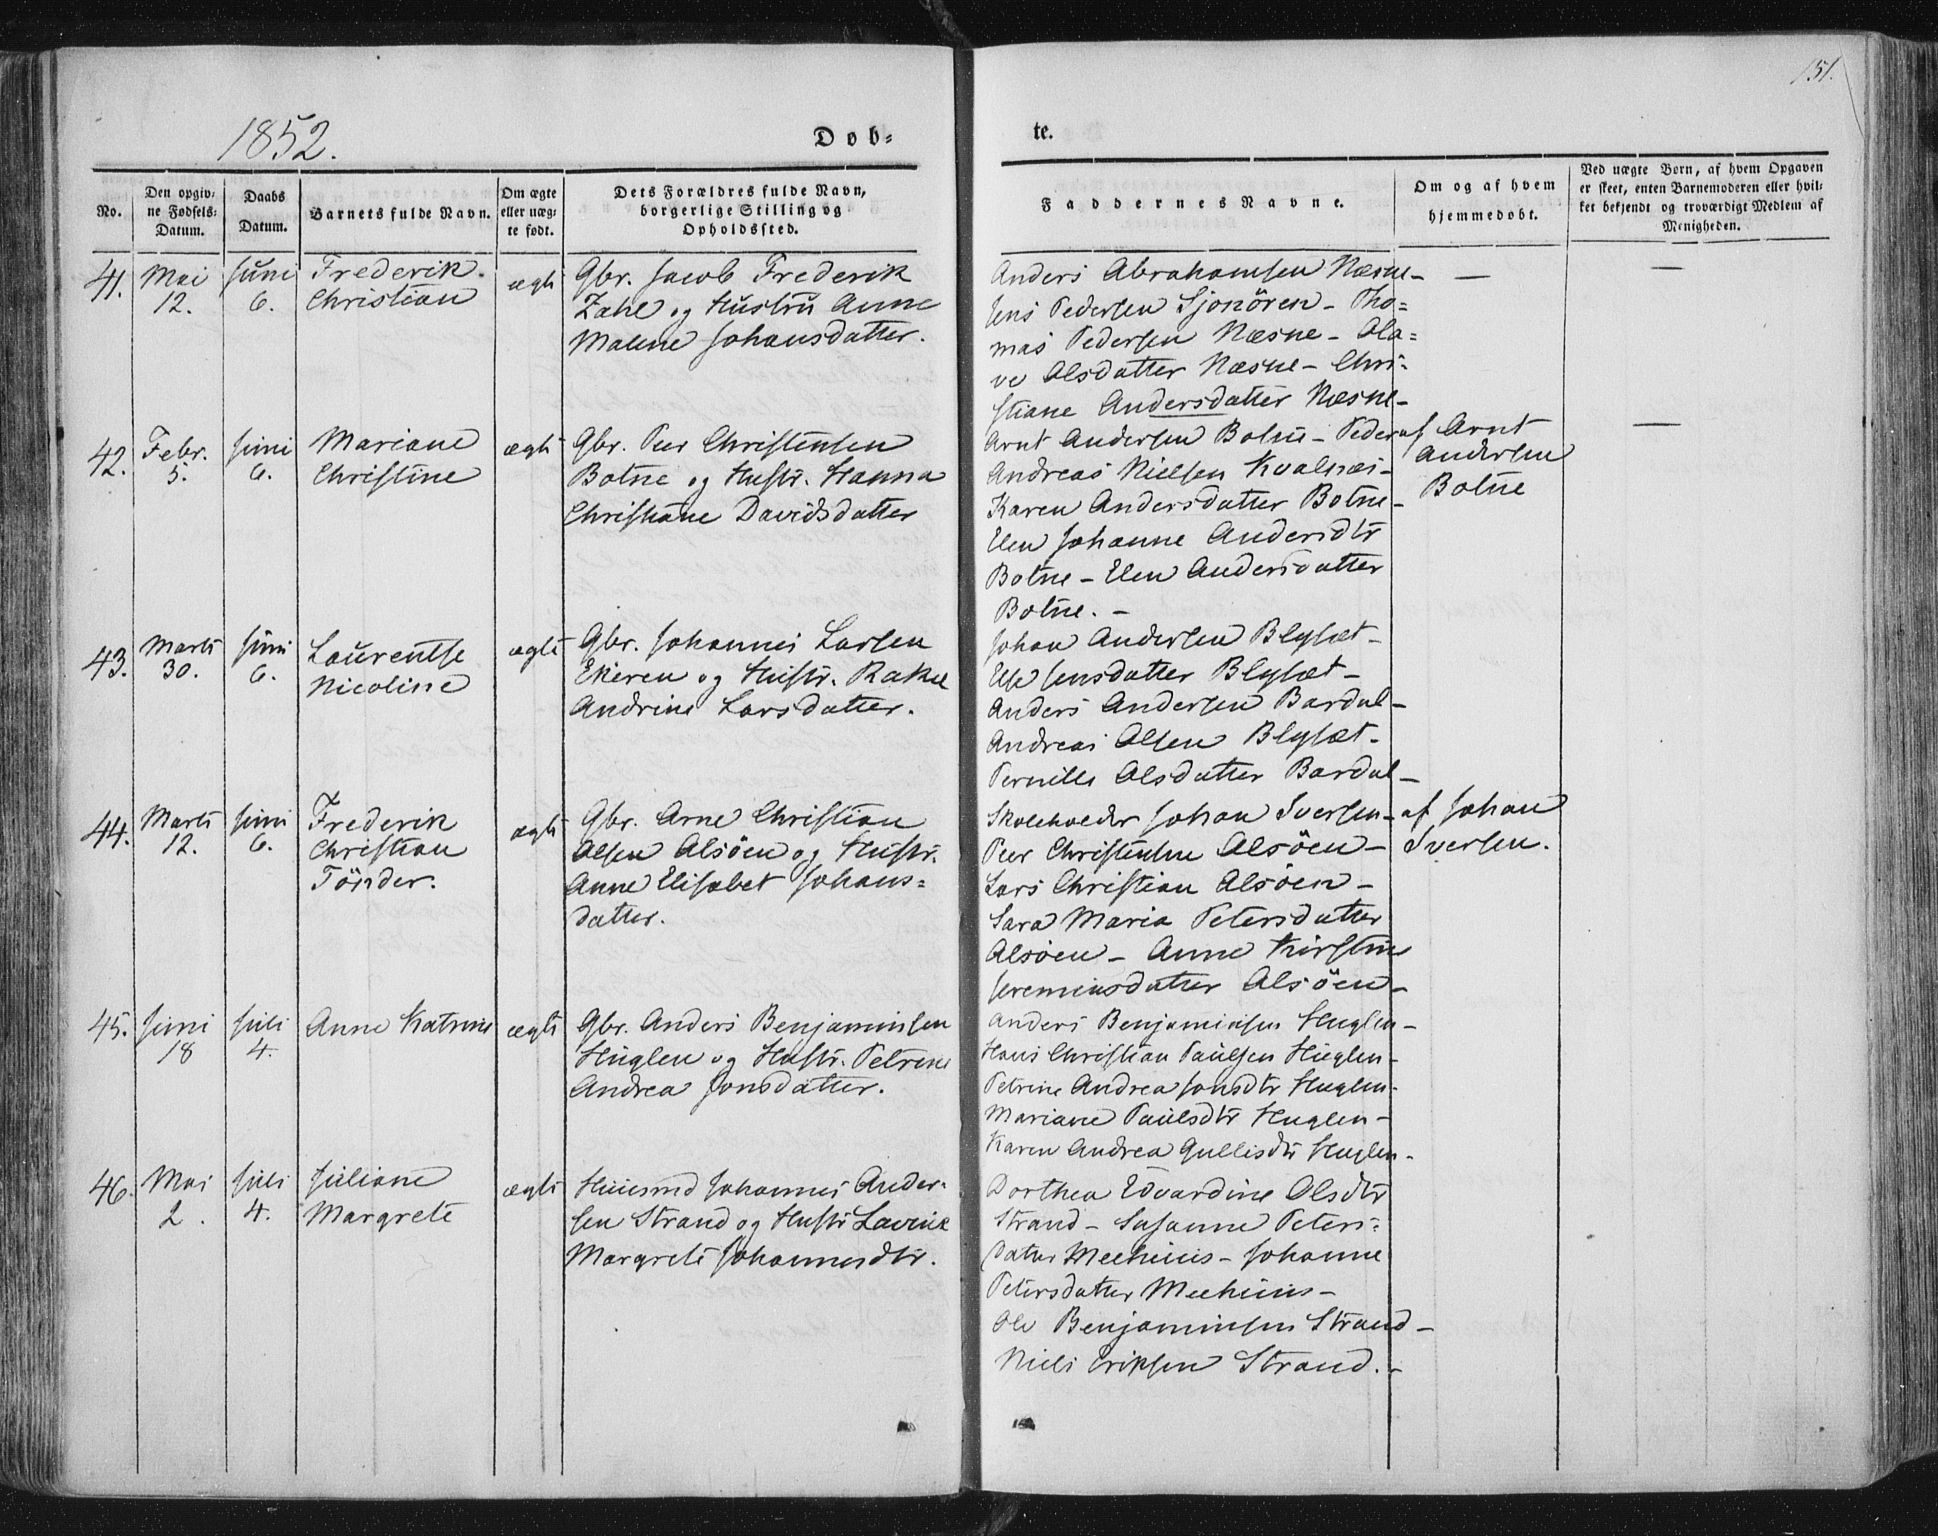 151.
1852.
Døb-
te.
No.
Den opgiv-
ne Fødsels-
Datum.
Daabs
Datum.
Barnets fulde Navn.
Om ægte
eller uæg-
te født.
Dets Forældres fulde Navn,
borgerlige Stilling og
Opholdssted.
Faddernes Navne.
Om og af hvem
hjemmedøbt.
Ved uægte Børn, af hvem Opgaven
er skeet, enten Barnemoderen eller hvil-
ket bekjendt og troværdigt Medlem af
Menigheden.
41.
Mai
12.
Juni
6.
Frederik
Christian
ægte
Gbr. Jacob Frederik
Zahl og Hustru Anne
Malene Johansdatter.
Anders Abrahamsen Næsne-
Jens Pedersen Sjonören - Tho=
mas Pedersen Næsne - Ola=
ve Olsdatter Næsne - Chri-
stiane Andersdatter Næsne-
—
—
42.
Febr.
5.
Juni
6.
Mariane
Christine
ægte
Gbr. Peer Christensen
Botne og Hustr. Hanna
Christiane Davidsdatter
Arnt Andersen Botne - Peder
Andreas Nielsen Kvalnæs-
Karen Andersdatter Botne-
Elen Johanne Andersdtr
Botne - Elen Andersdatter
Botne. -
af Arnt
Andersen
Botne
—
43.
Marts
30.
Juni
6.
Laurentse
Nicoline
ægte
Gbr. Johannes Larsen
Ekeren og Hustr. Rakel
Andrine Larsdatter.
Johan Andersen Blysæt-
Else Jensdatter Blysæt-
Anders Andersen Bardal-
Andreas Olsen Blysæt-
Pernille Olsdatter Bardal-
44.
Marts
12.
Juni
6.
Frederik
Christian
Tönder.
ægte
Gbr. Arne Christian
Olsen Alsöen og Hustr.
Anne Elisabet Johans=
datter.
Skoleholder Johan Iversen-
Peer Christensen Alsöen-
Lars Christian Alsöen-
Sara Maria Petersdatter
Alsöen - Anne Kirstine
Jeremiasdatter Alsöen-
af Johan
Iversen.
45.
Juni
18
Juli
4.
Anne Katrine
ægte
Gbr. Anders Benjaminsen
Huglen og Hustr. Petrine
Andrea Jonsdatter.
Anders Benjaminsen Huglen-
Hans Christian Paulsen Huglen-
Petrine Andrea Jonsdtr Huglen-
Mariane Paulsdtr Huglen-
Karen Andrea Gullisdtr Huglen-
46.
Mai
2.
Juli
4.
Juliane
Margrete
ægte
Huusmd Johannes Ander-
sen Strand og Hustr Lavine
Margrete Johannesdtr.
Dorthea Edvardine Olsdtr
Strand - Susanne Peters-
datter - Johanne
Petersdatter
Ole Benjaminsen Strand-
Niels Eriksen Strand.-